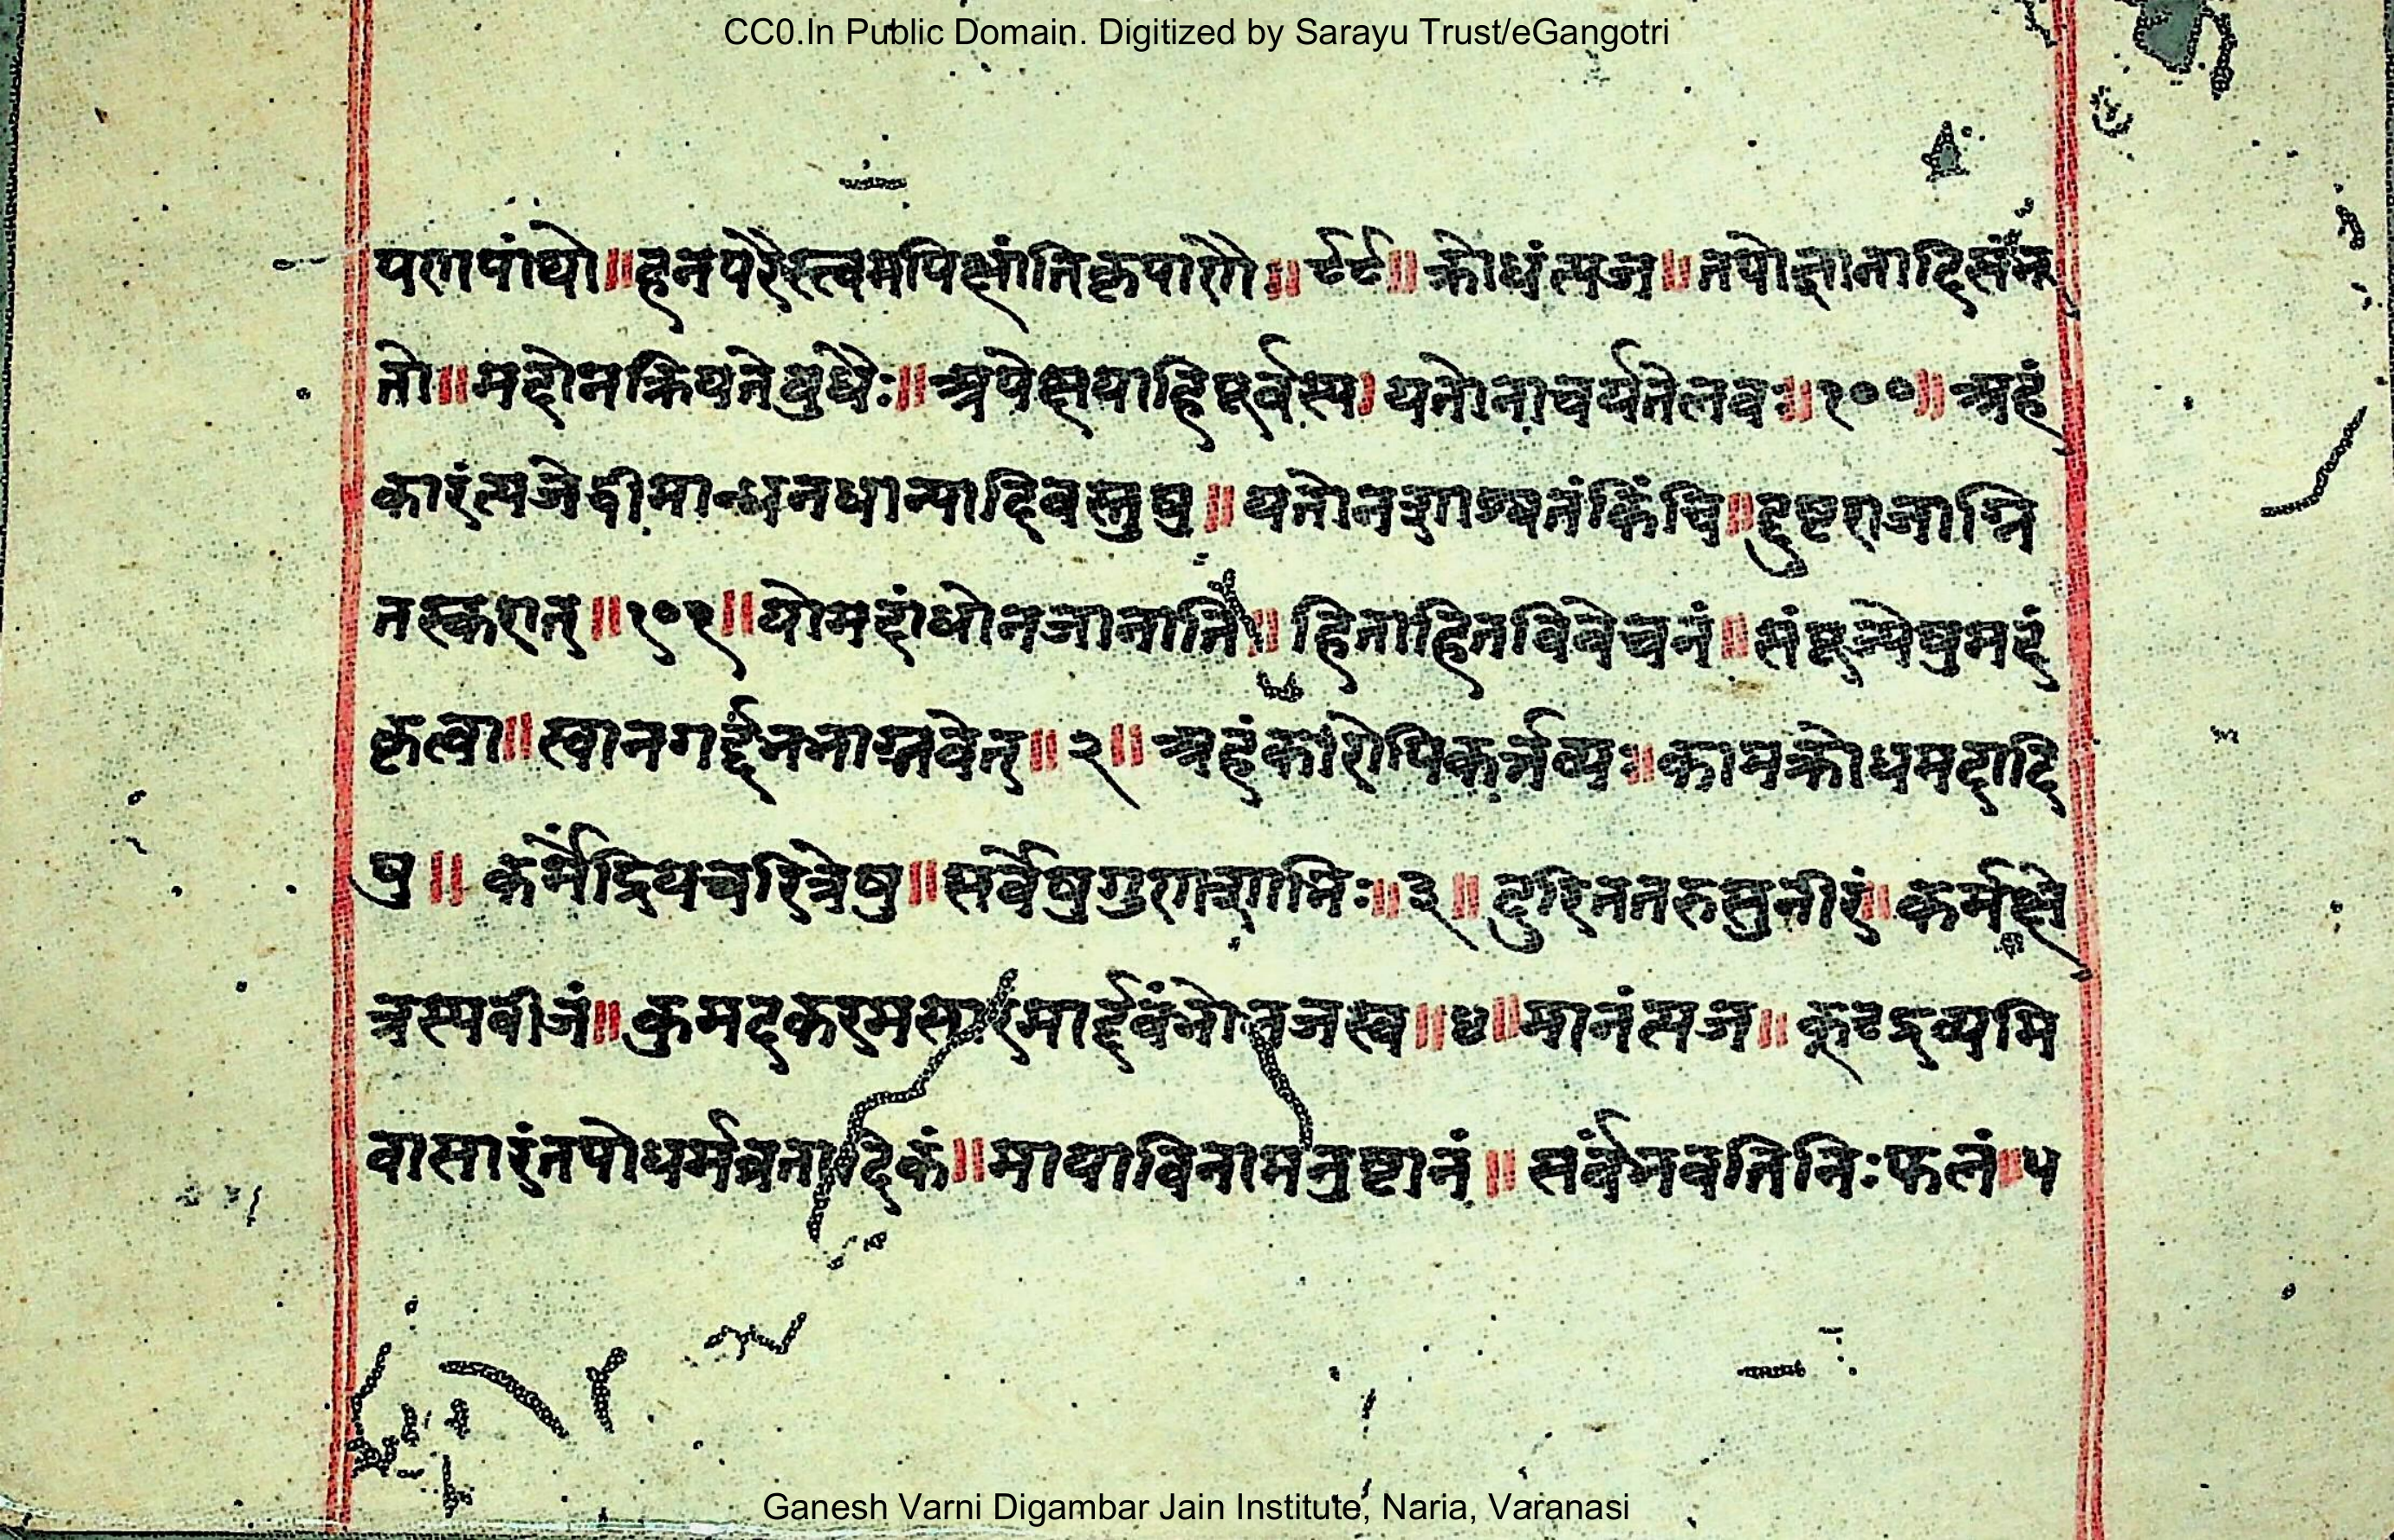 CC0.In Public Domain. Digitized by Sarayu Trust/eGangotri
पणपांथो॥ हनपरैस्त्वमपिक्षांतिकृपाणैः॥ ९९॥ क्रोधंत्यज॥ तपोज्ञानादिसंन
तो॥ मदोनक्रियतेबुधैः॥ अपेक्षयाहिपूर्वस्य। यतोनाचर्यतेलवः॥ १००॥ अहं
कारंत्यजेद्दीमान्धनधान्यादिवस्तुषु॥ यतोनशाश्वतंकिंचि॥ द्दुष्टराजाग्नि
तस्करात्॥ १०१॥ योमदांधोनजानाति॥ हिताहितविवेचनं॥ संपूज्येषुमदं
कृत्वा॥ स्वानगर्द्दभतमाग्भवेत्॥ २॥ अहंकारोपिकर्त्तव्यः॥ कामक्रोधमदादि
षु॥ कर्मेंद्रियचरित्रेषु॥ सर्वेषुगुणशालिभिः॥ ३॥ दुरिततरुसुनीरं॥ कर्मक्षे
त्रस्यबीजं॥ कुमदकरमसारंमार्द्दवंभोभजस्व॥ ४॥ मानंत्यज॥ कूटद्रव्यमि
वासारंतपोधर्मव्रतादिकं॥ मायाविनामनुष्टानं॥ सर्वंभवतिनिःफलं॥ ५
Ganesh Varni Digambar Jain Institute, Naria, Varanasi